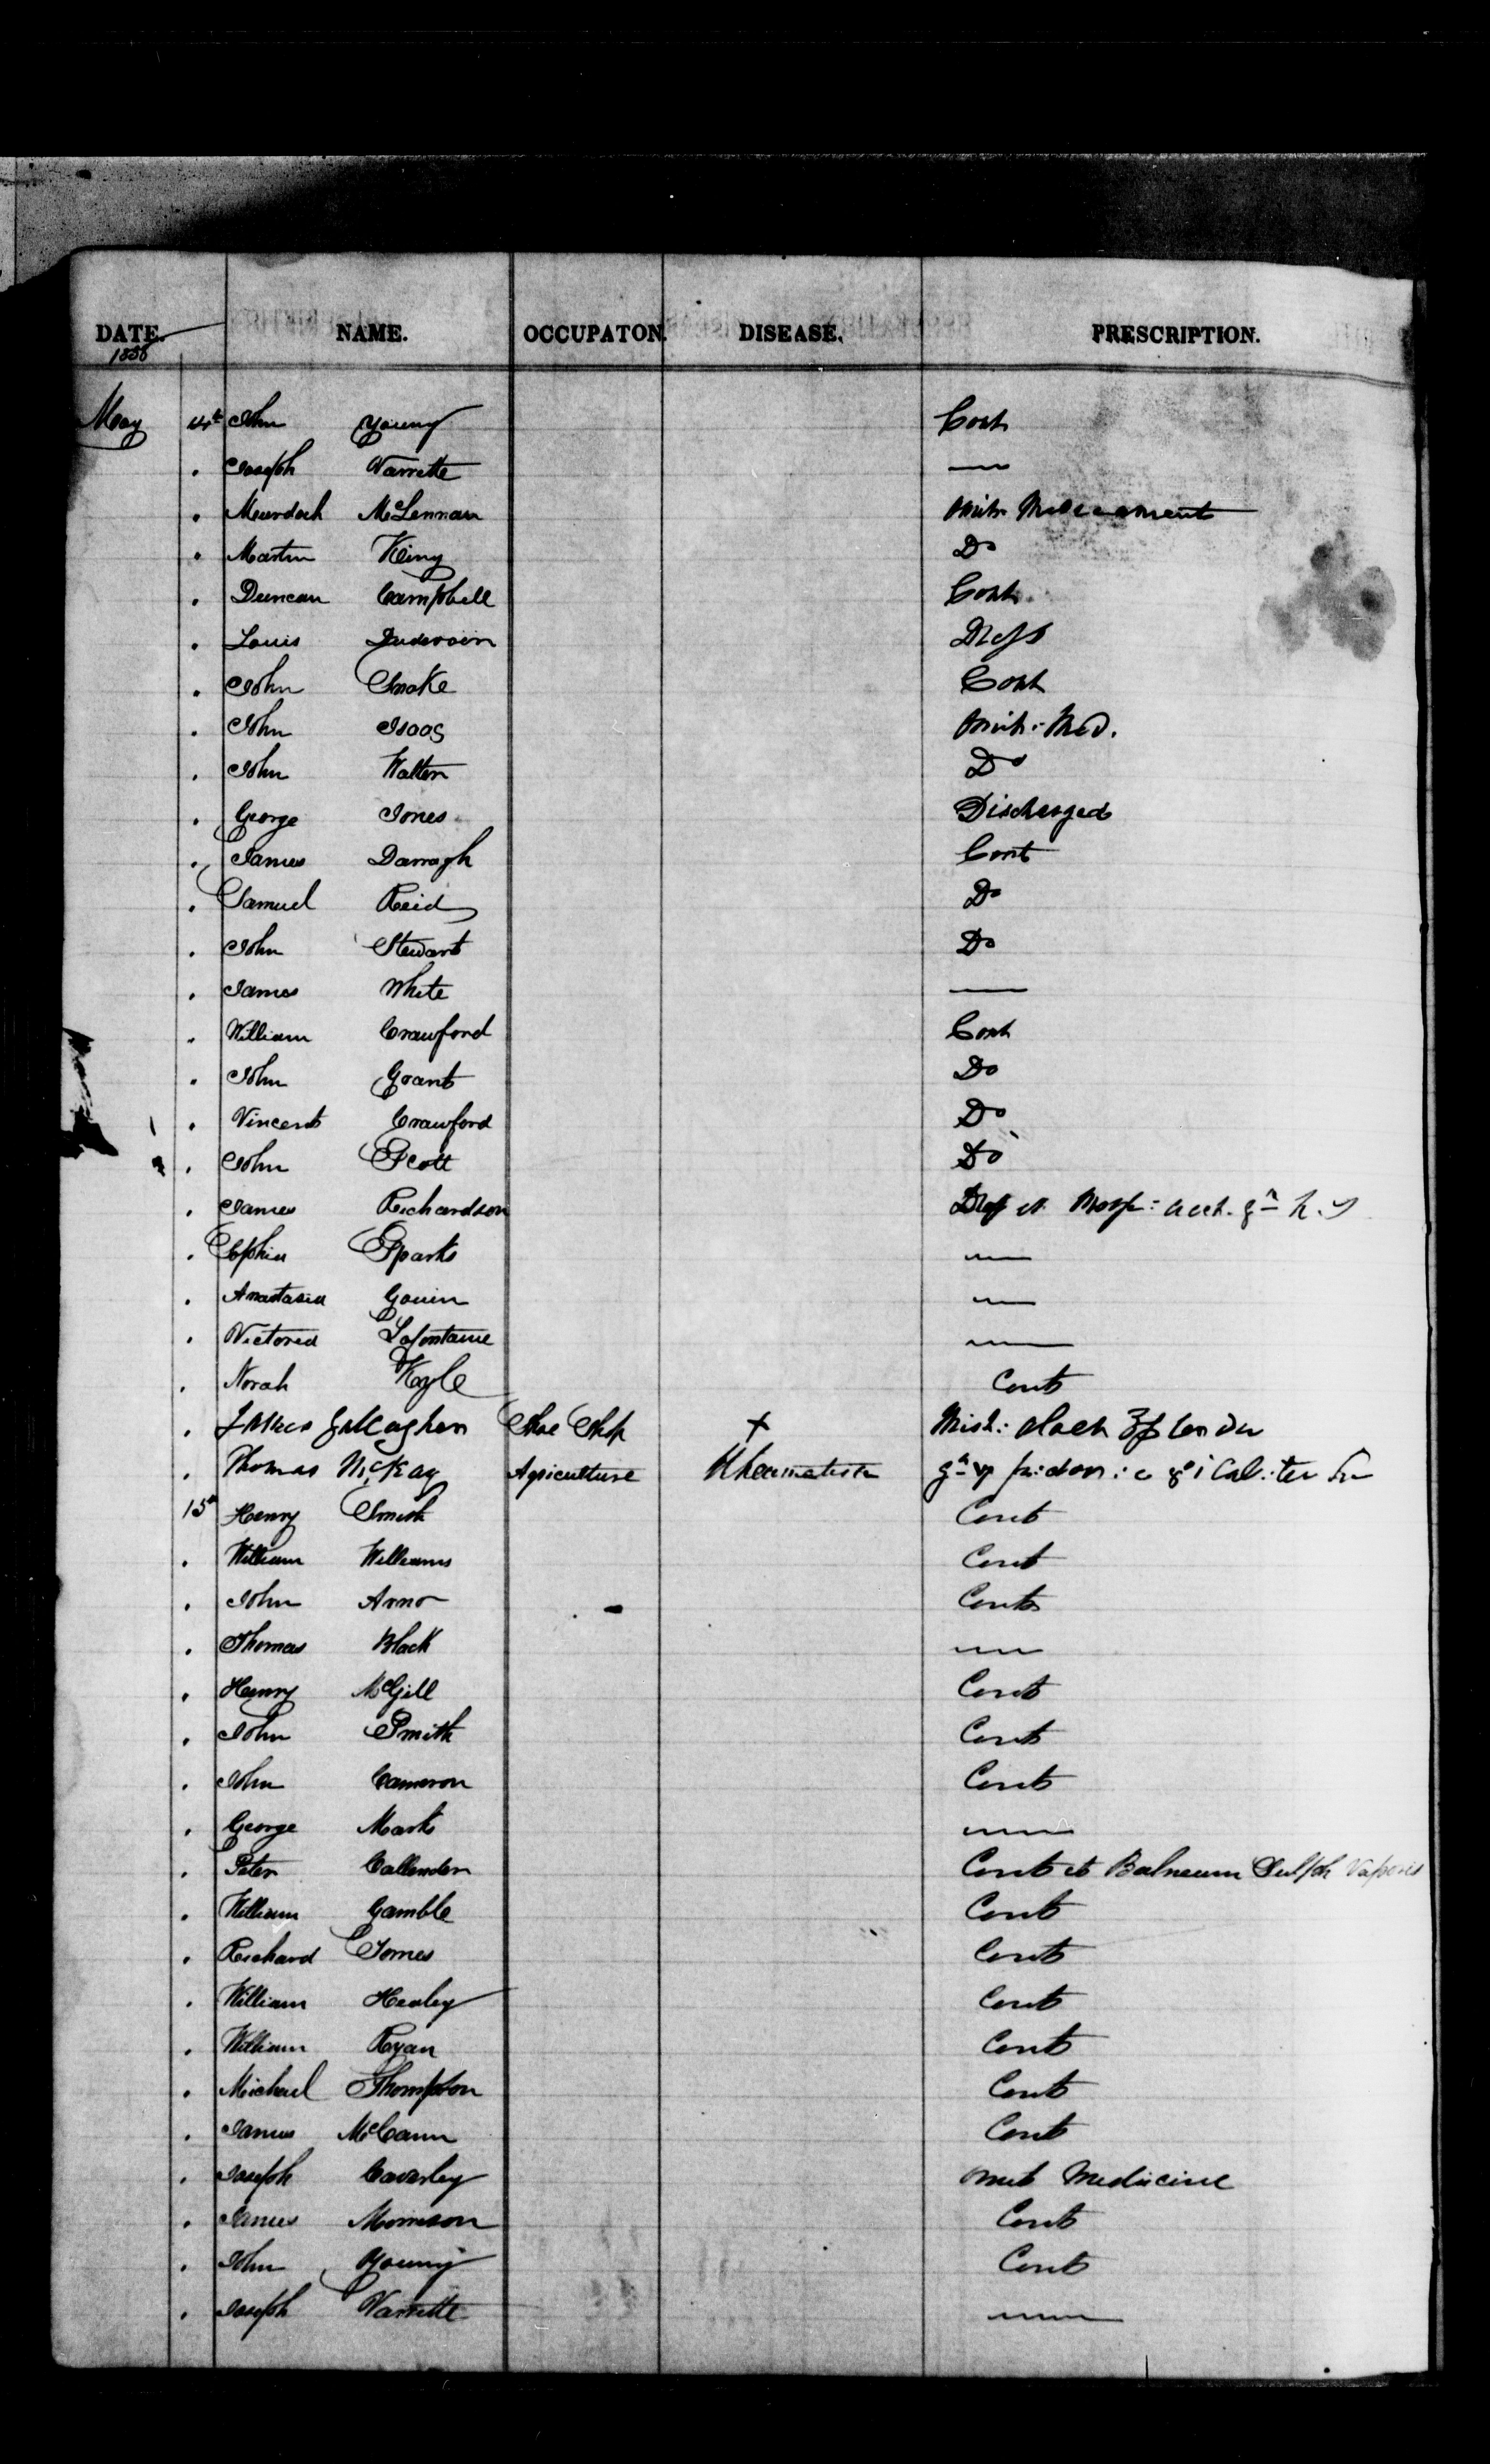 DATE. NAME. OCCUPATON. DISEASE. PRESCRIPTION.
May 14th John Young Cont
" Joseph Varrette —
" Murdoch McLennan Mist. Medicament
" Martin King Do
" Duncan Campbell Cont.
" Louis
" John Snake Cont
" John Isaac Mist: Med.
" John Walton Do
" George Jones Discharged
" James Darragh Cont
" Samuel Reid Do
" John Stewart Do
" James White —
" William Crawford Cont
" John Grant Do
" Vincent Crawford Do
" John Scott Do
" James Richardson
" Sophia Sparks —
" Anastasia Gouin —
" Victored Lafontaine —
" Norah Kyle Cont
" James Gallagher Shoe Shop + Mist:
" Thomas McKay Agriculture Rheumatism
15th Henry Smith Cont
" William Williams Cont
" John Arno Cont
" Thomas Black —
" Henry McGill Cont
" John Smith Cont
" John Cameron Cont
" George Marks —
" Peter Callender Cont et Balneum Sulph Vaporis
" William Gamble Cont
" Richard Jones Cont
" William Healey Cont
" William Ryan Cont
" Michael Thompson Cont
" James McCann Cont
" Joseph Caverley Omit Medicine
" James Morrison Cont
" John Young Cont
" Joseph Varrette —